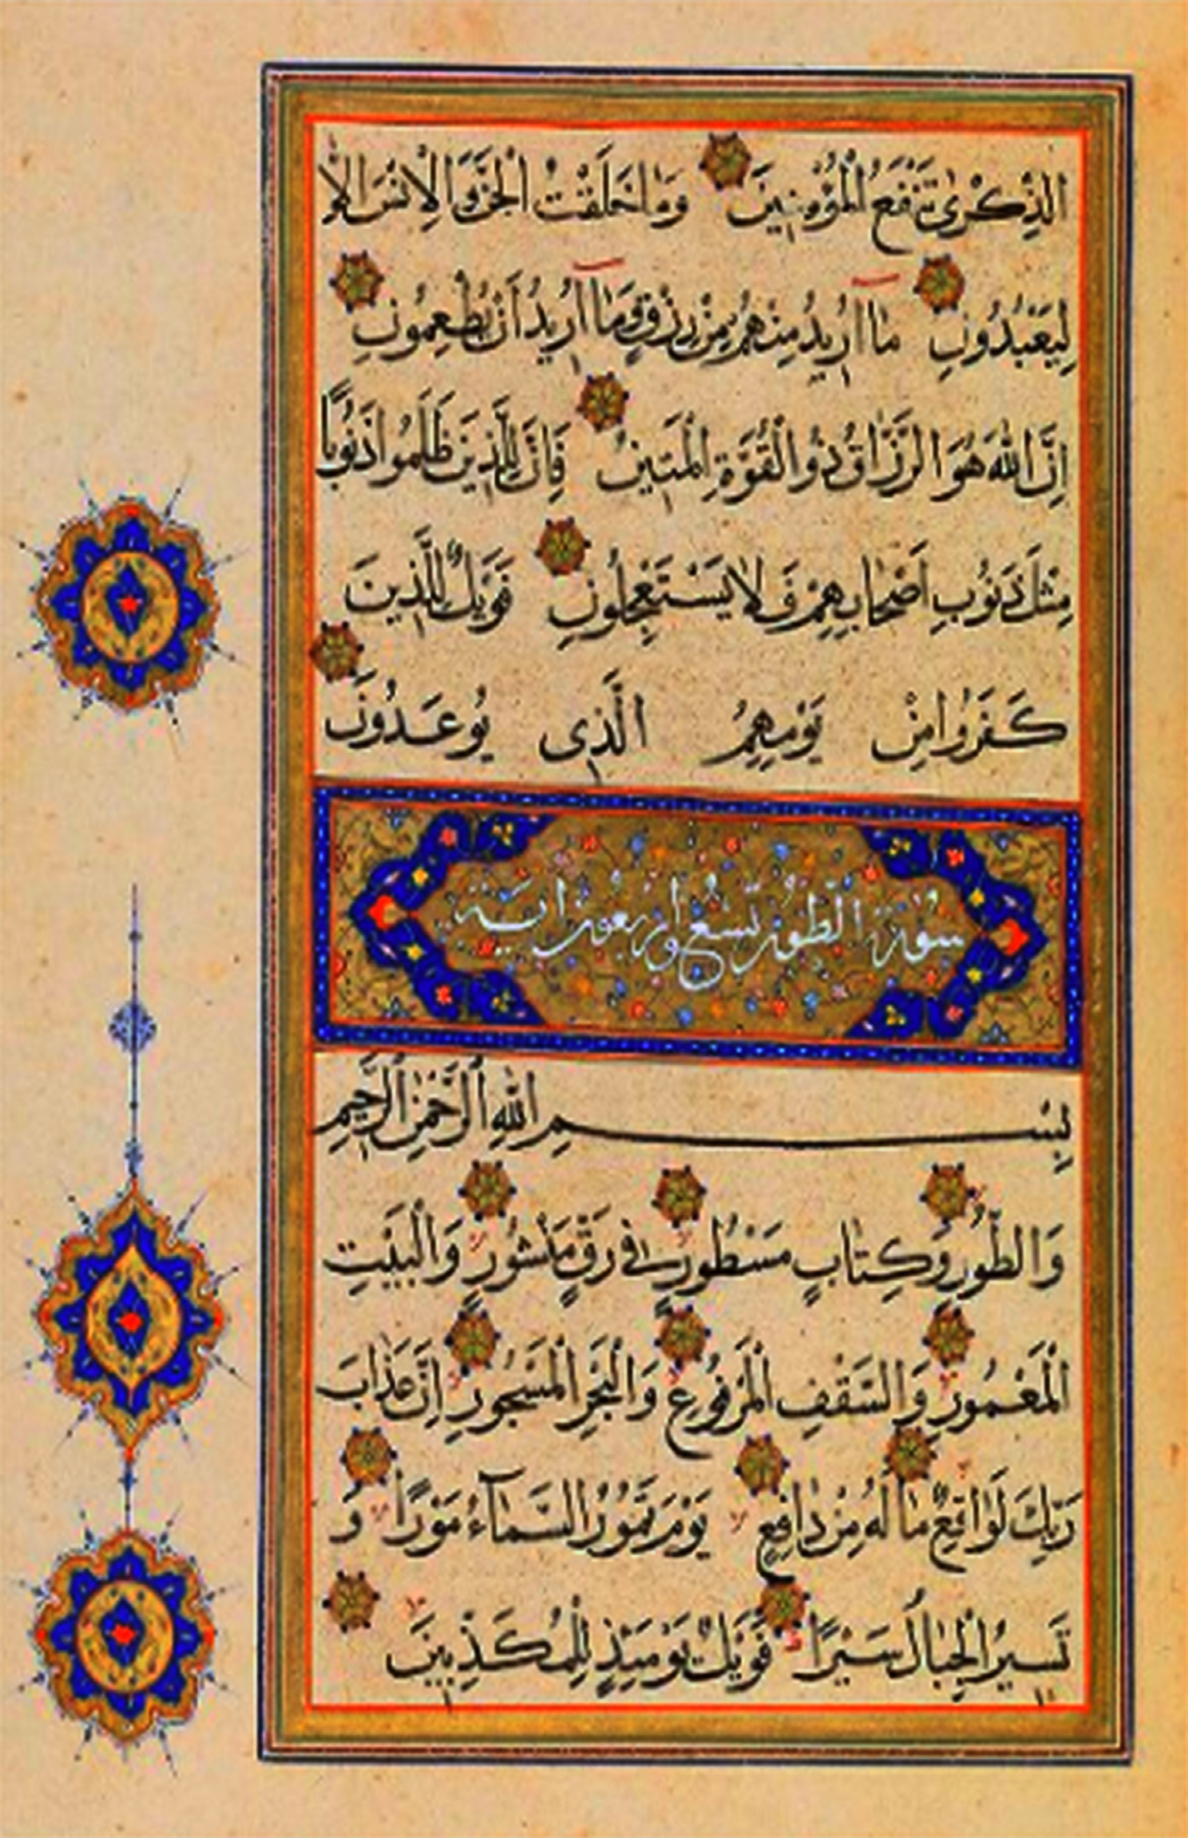 الذِّكْرىٰ تَنْفَعُ الْمُؤْمِنِينَ وَمَا خَلَقْتُ الْجِنَّ وَالْاِنْسَ اِلَّا
لِيَعْبُدُونِ مَا اُرِيدُ مِنْهُمْ مِنْ رِزْقٍ وَمَا اُرِيدُ اَنْ يُطْعِمُونِ
اِنَّ اللّٰهَ هُوَ الرَّزَّاقُ ذُو الْقُوَّةِ الْمَتِينُ فَاِنَّ لِلَّذِينَ ظَلَمُوا ذَنُوبًا
مِثْلَ ذَنُوبِ اَصْحَابِهِمْ فَلَا يَسْتَعْجِلُونِ فَوَيْلٌ لِلَّذِينَ
كَفَرُوا مِنْ يَوْمِهِمُ الَّذِى يُوعَدُونَ
سُورَة الطُّور تِسْعٌ وَارْبَعُونَ اٰيَة
بِسْمِ اللّٰهِ الرَّحْمٰنِ الرَّحِيمِ
وَالطُّورِ وَكِتَابٍ مَسْطُورٍ فِى رَقٍّ مَنْشُورٍ وَالْبَيْتِ
الْمَعْمُورِ وَالسَّقْفِ الْمَرْفُوعِ وَالْبَحْرِ الْمَسْجُورِ اِنَّ عَذَابَ
رَبِّكَ لَوَاقِعٌ مَا لَهُ مِنْ دَافِعٍ يَوْمَ تَمُورُ السَّمَآءُ مَوْرًا وَ
تَسِيرُ الْجِبَالُ سَيْرًا فَوَيْلٌ يَوْمَئِذٍ لِلْمُكَذِّبِينَ